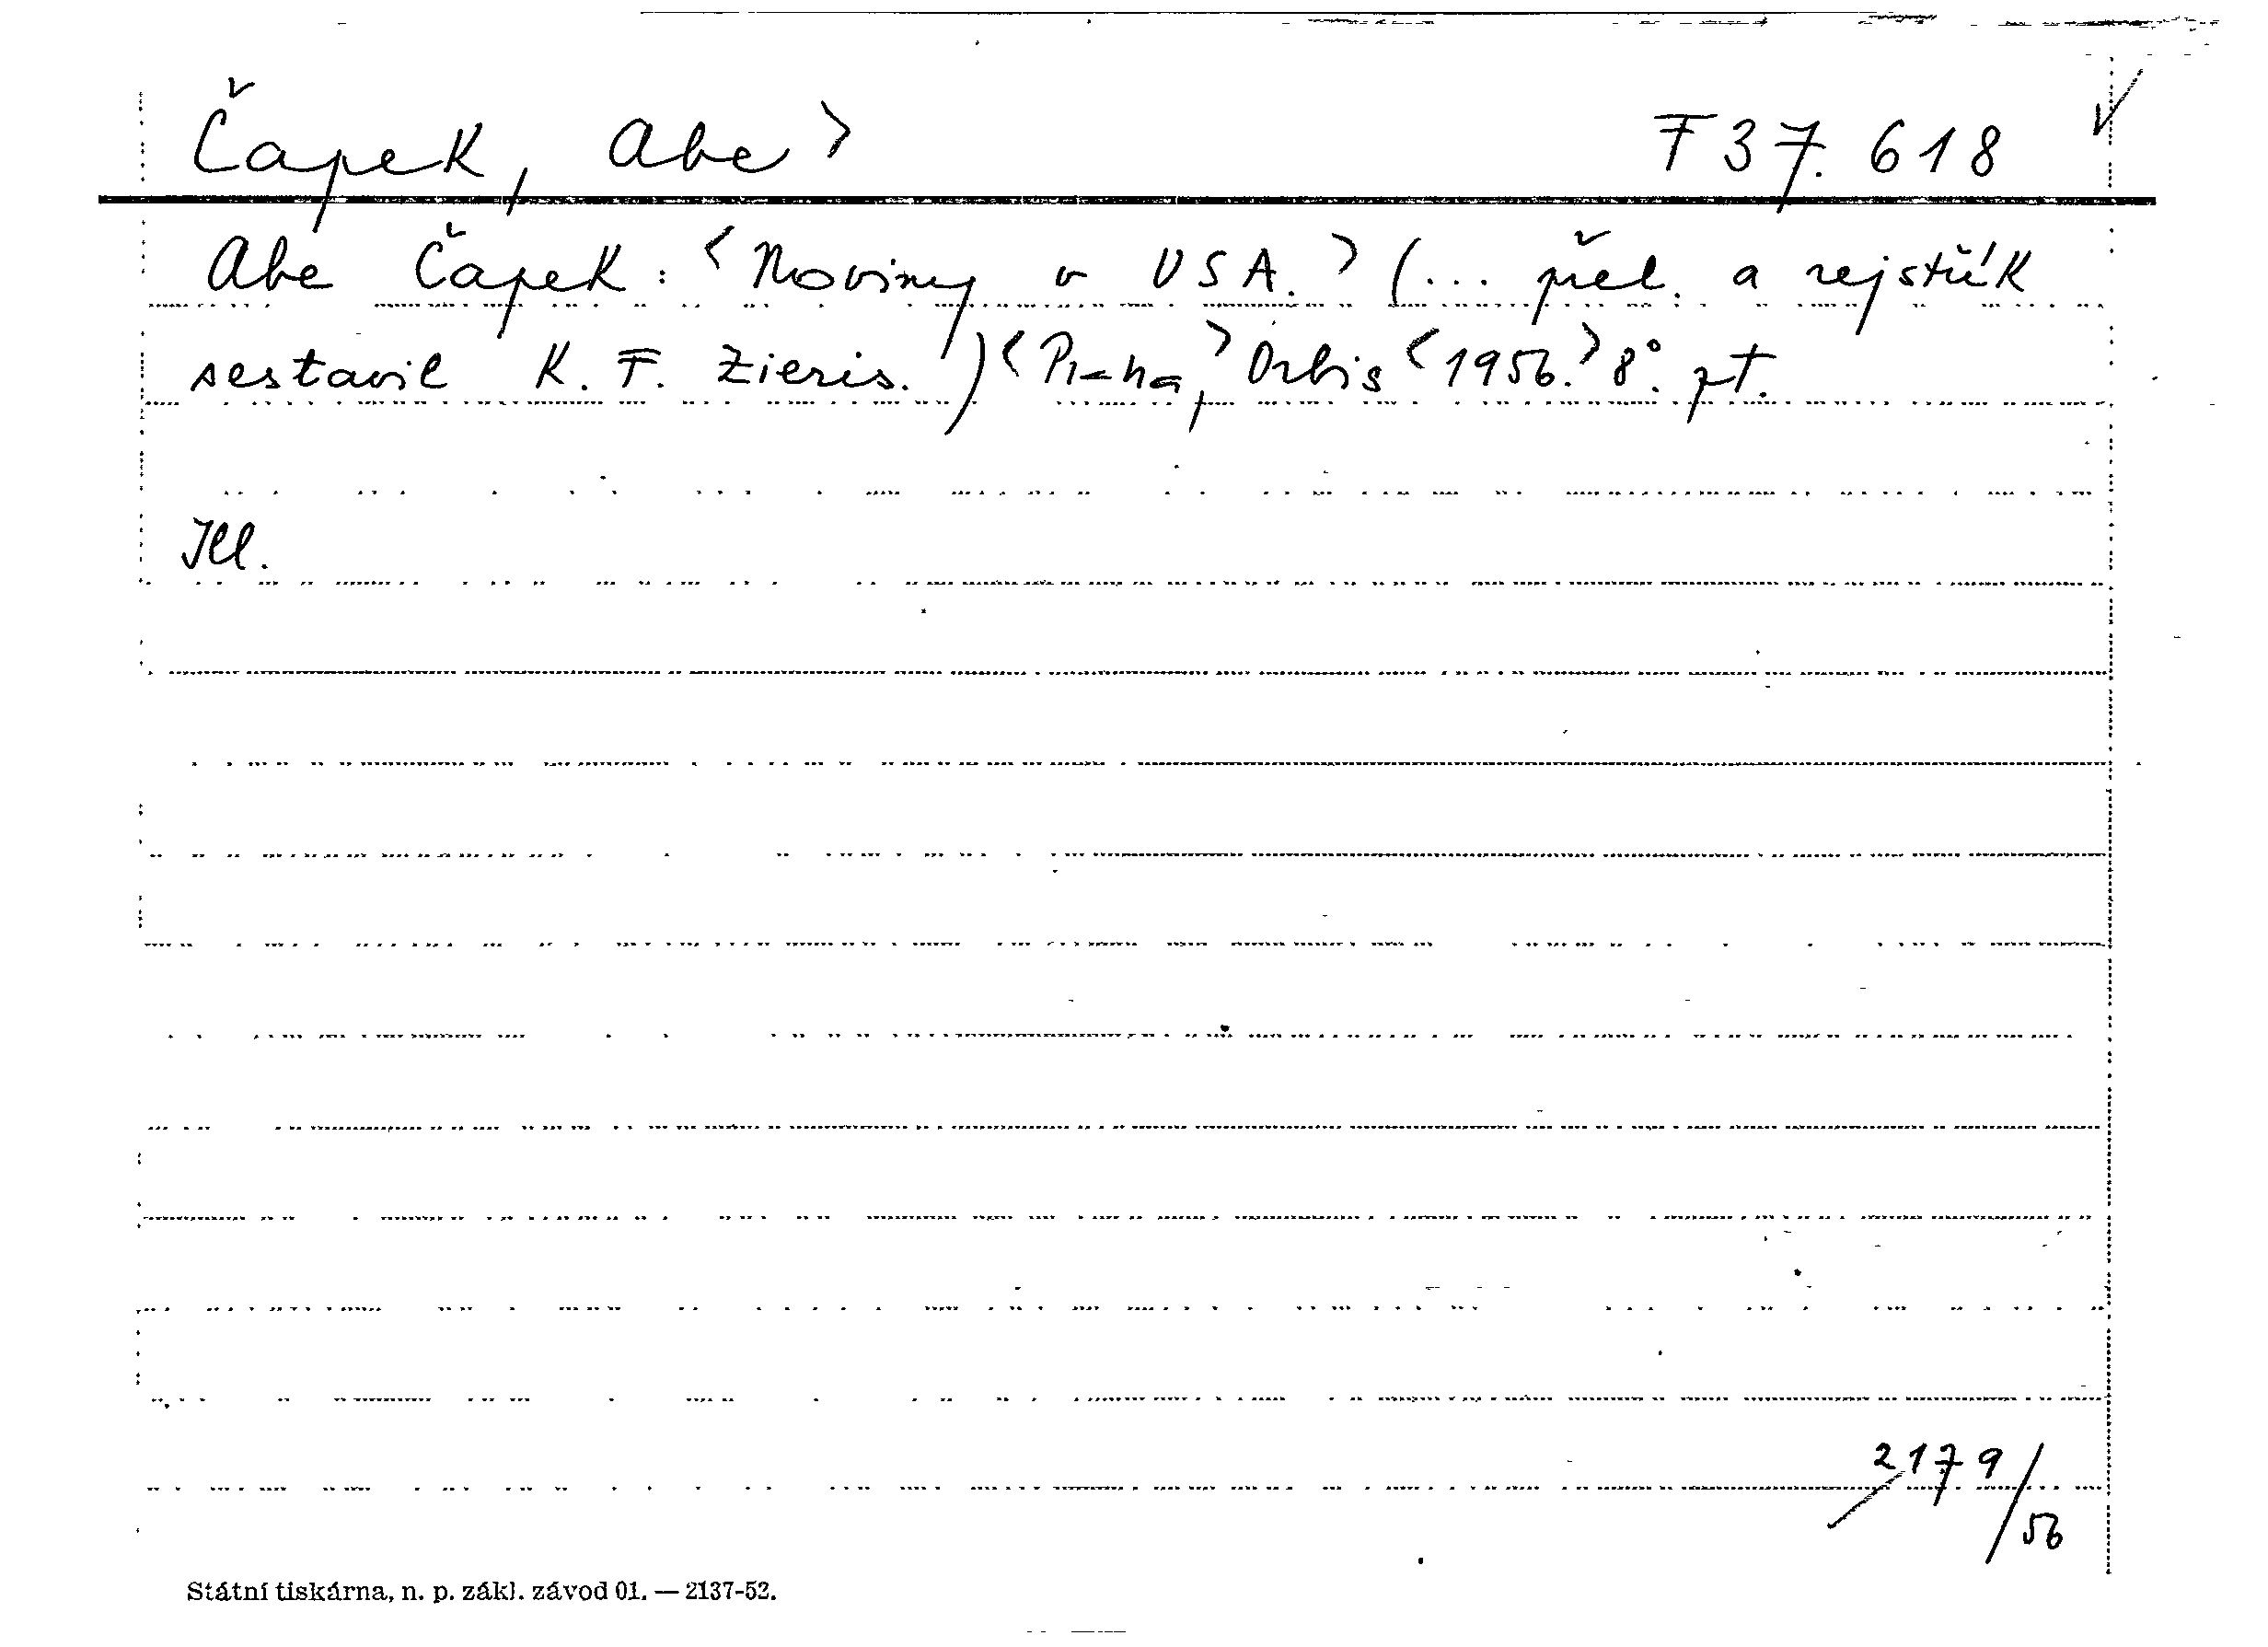 Čapek, Abe > F 37.618 ✓
Abe Čapek: <Noviny v USA.> (... přel. a rejstřík
sestavil K. F. Zieris.) <Praha,> Orbis <1956.> 8°. pt.
Ill.
2179/56
Státní tiskárna, n. p. zákl. závod 01. — 2137-52.